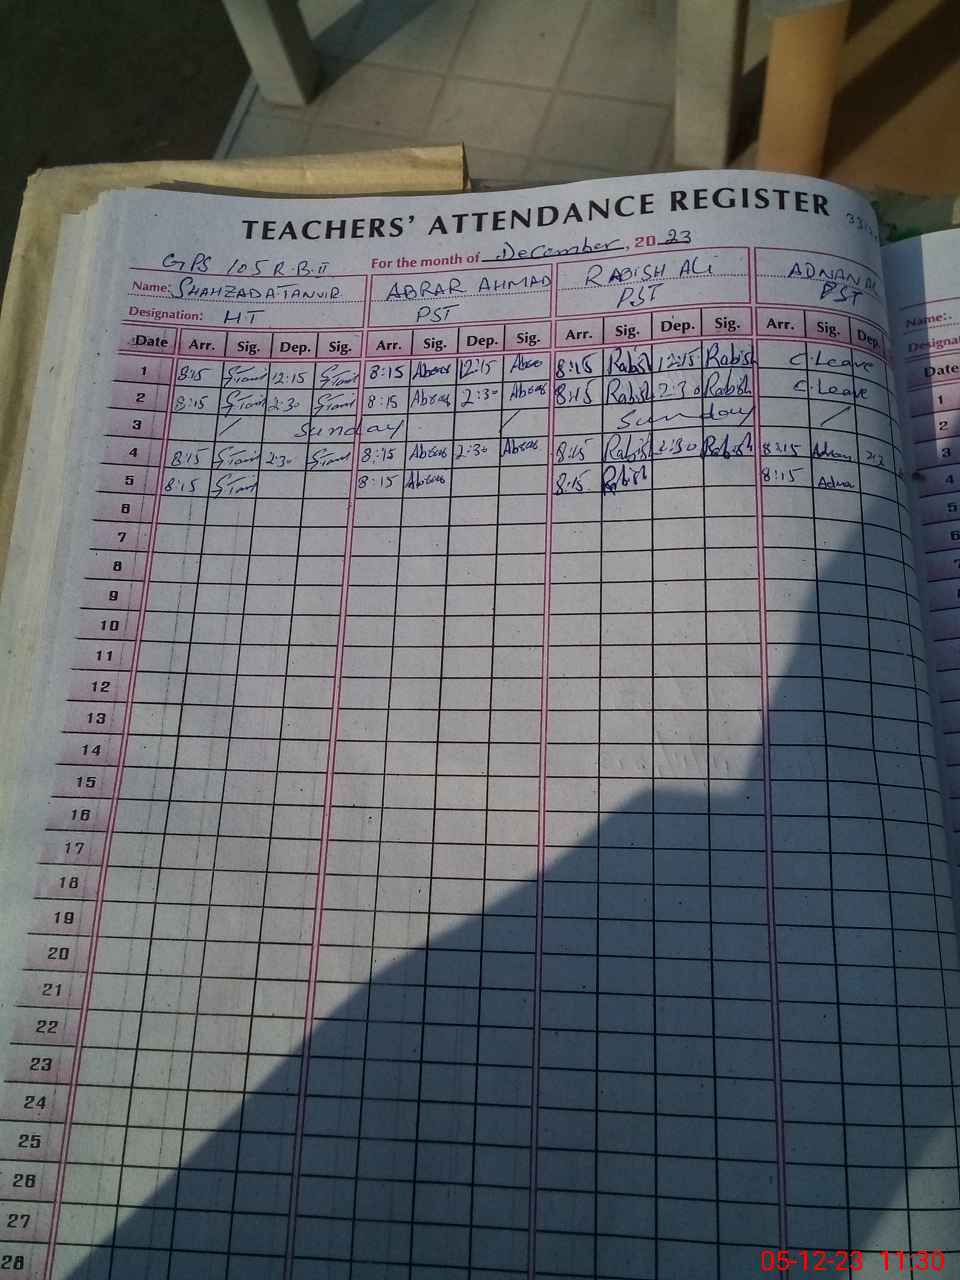 TEACHERS' ATTENDANCE REGISTER
GPS 105 R.B.II For the month of December, 2023
Name: SHAHZADA TANVIR ABRAR AHMAD RABISH ALi ADNAN
Designation: HT PST PST PST
Date Arr. Sig. Dep. Sig. Arr. Sig. Dep. Sig. Arr. Sig. Dep. Sig. Arr. Sig. Dep.
1 8:15 12:15 8:15 12:15 8:15 Rabish 12:15 Rabish C. Leave
2 8:15 2:30 8:15 2:30 8:15 Rabish 2:30 Rabish C. Leave
3 / Sunday / Sunday /
4 8:15 2:30 8:15 2:30 8:15 Rabish 2:30 Rabish 8:15
5 8:15 8:15 8:15 Rabish 8:15
6
7
8
9
10
11
12
13
14
15
16
17
18
19
20
21
22
23
24
25
26
27
28
Name:
Date
1
2
3
4
5
6
05-12-23 11:30